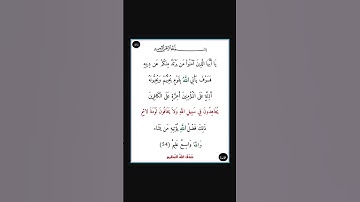 يَا أَيُّهَا الَّذِينَ آمَنُوا مَن يَرْتَدَّ مِنكُمْ عَن دِينِهِ
فَسَوْفَ يَأْتِي اللَّهُ بِقَوْمٍ يُحِبُّهُمْ وَيُحِبُّونَهُ
أَذِلَّةٍ عَلَى الْمُؤْمِنِينَ أَعِزَّةٍ عَلَى الْكَافِرِينَ
يُجَاهِدُونَ فِي سَبِيلِ اللَّهِ وَلَا يَخَافُونَ لَوْمَةَ لَائِمٍ
ذَلِكَ فَضْلُ اللَّهِ يُؤْتِيهِ مَن يَشَاءُ
وَاللَّهُ وَاسِعٌ عَلِيمٌ (54)
صدق الله العظيم